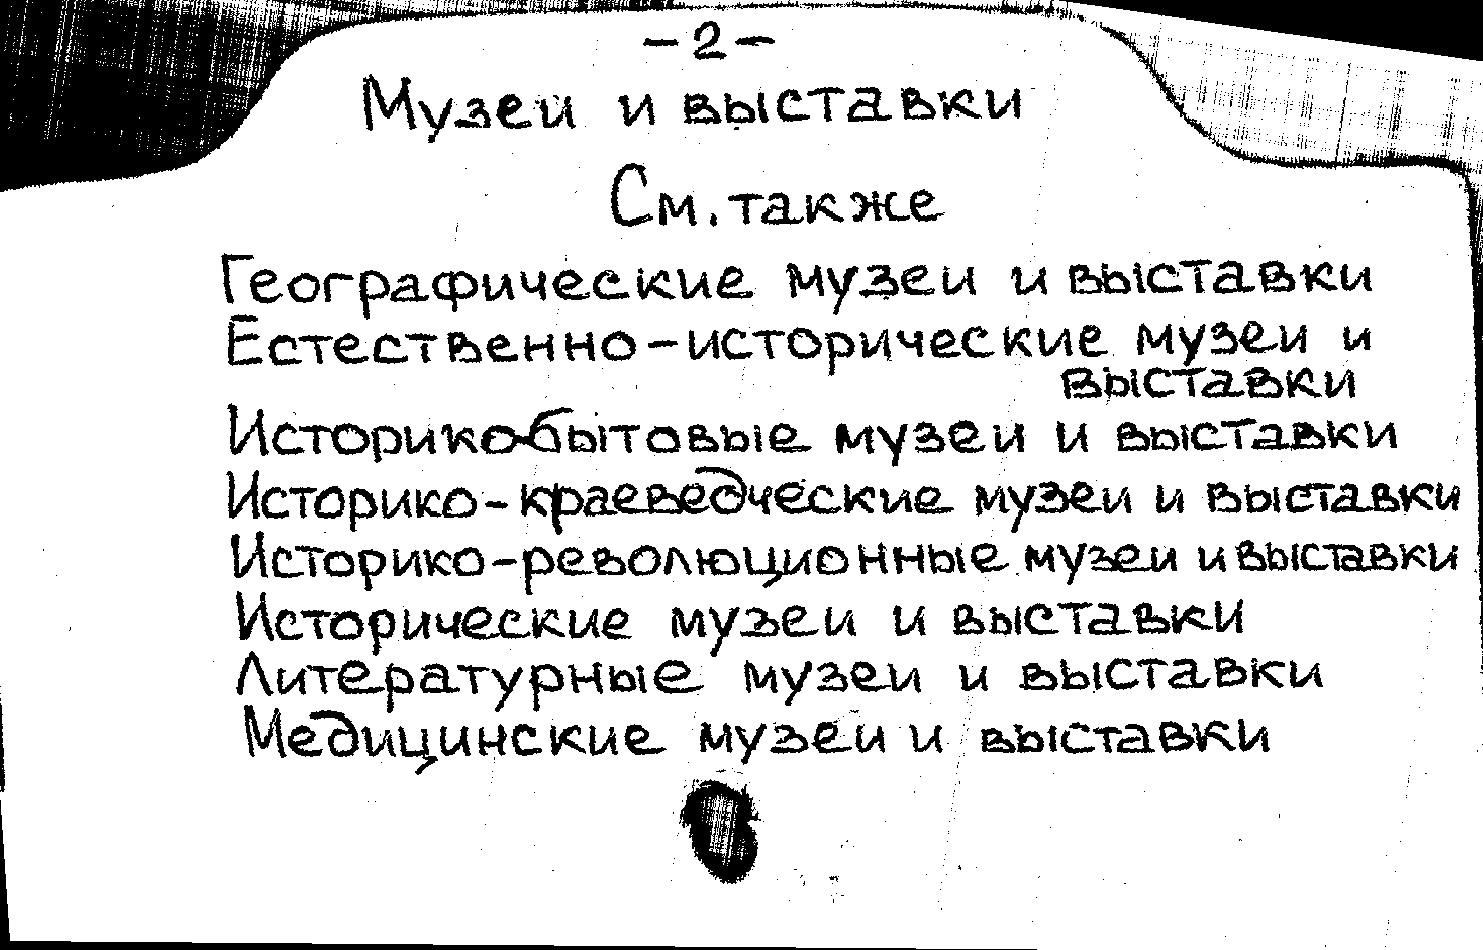 -2-
Музеи и выставки
См. также
Географические музеи и выставки
Естественно-исторические музеи и
выставки
Историко-бытовые музеи и выставки
Историко-краеведческие музеи и выставки
Историко-революционные музеи и выставки
Исторические музеи и выставки
Литературные музеи и выставки
Медицинские музеи и выставки